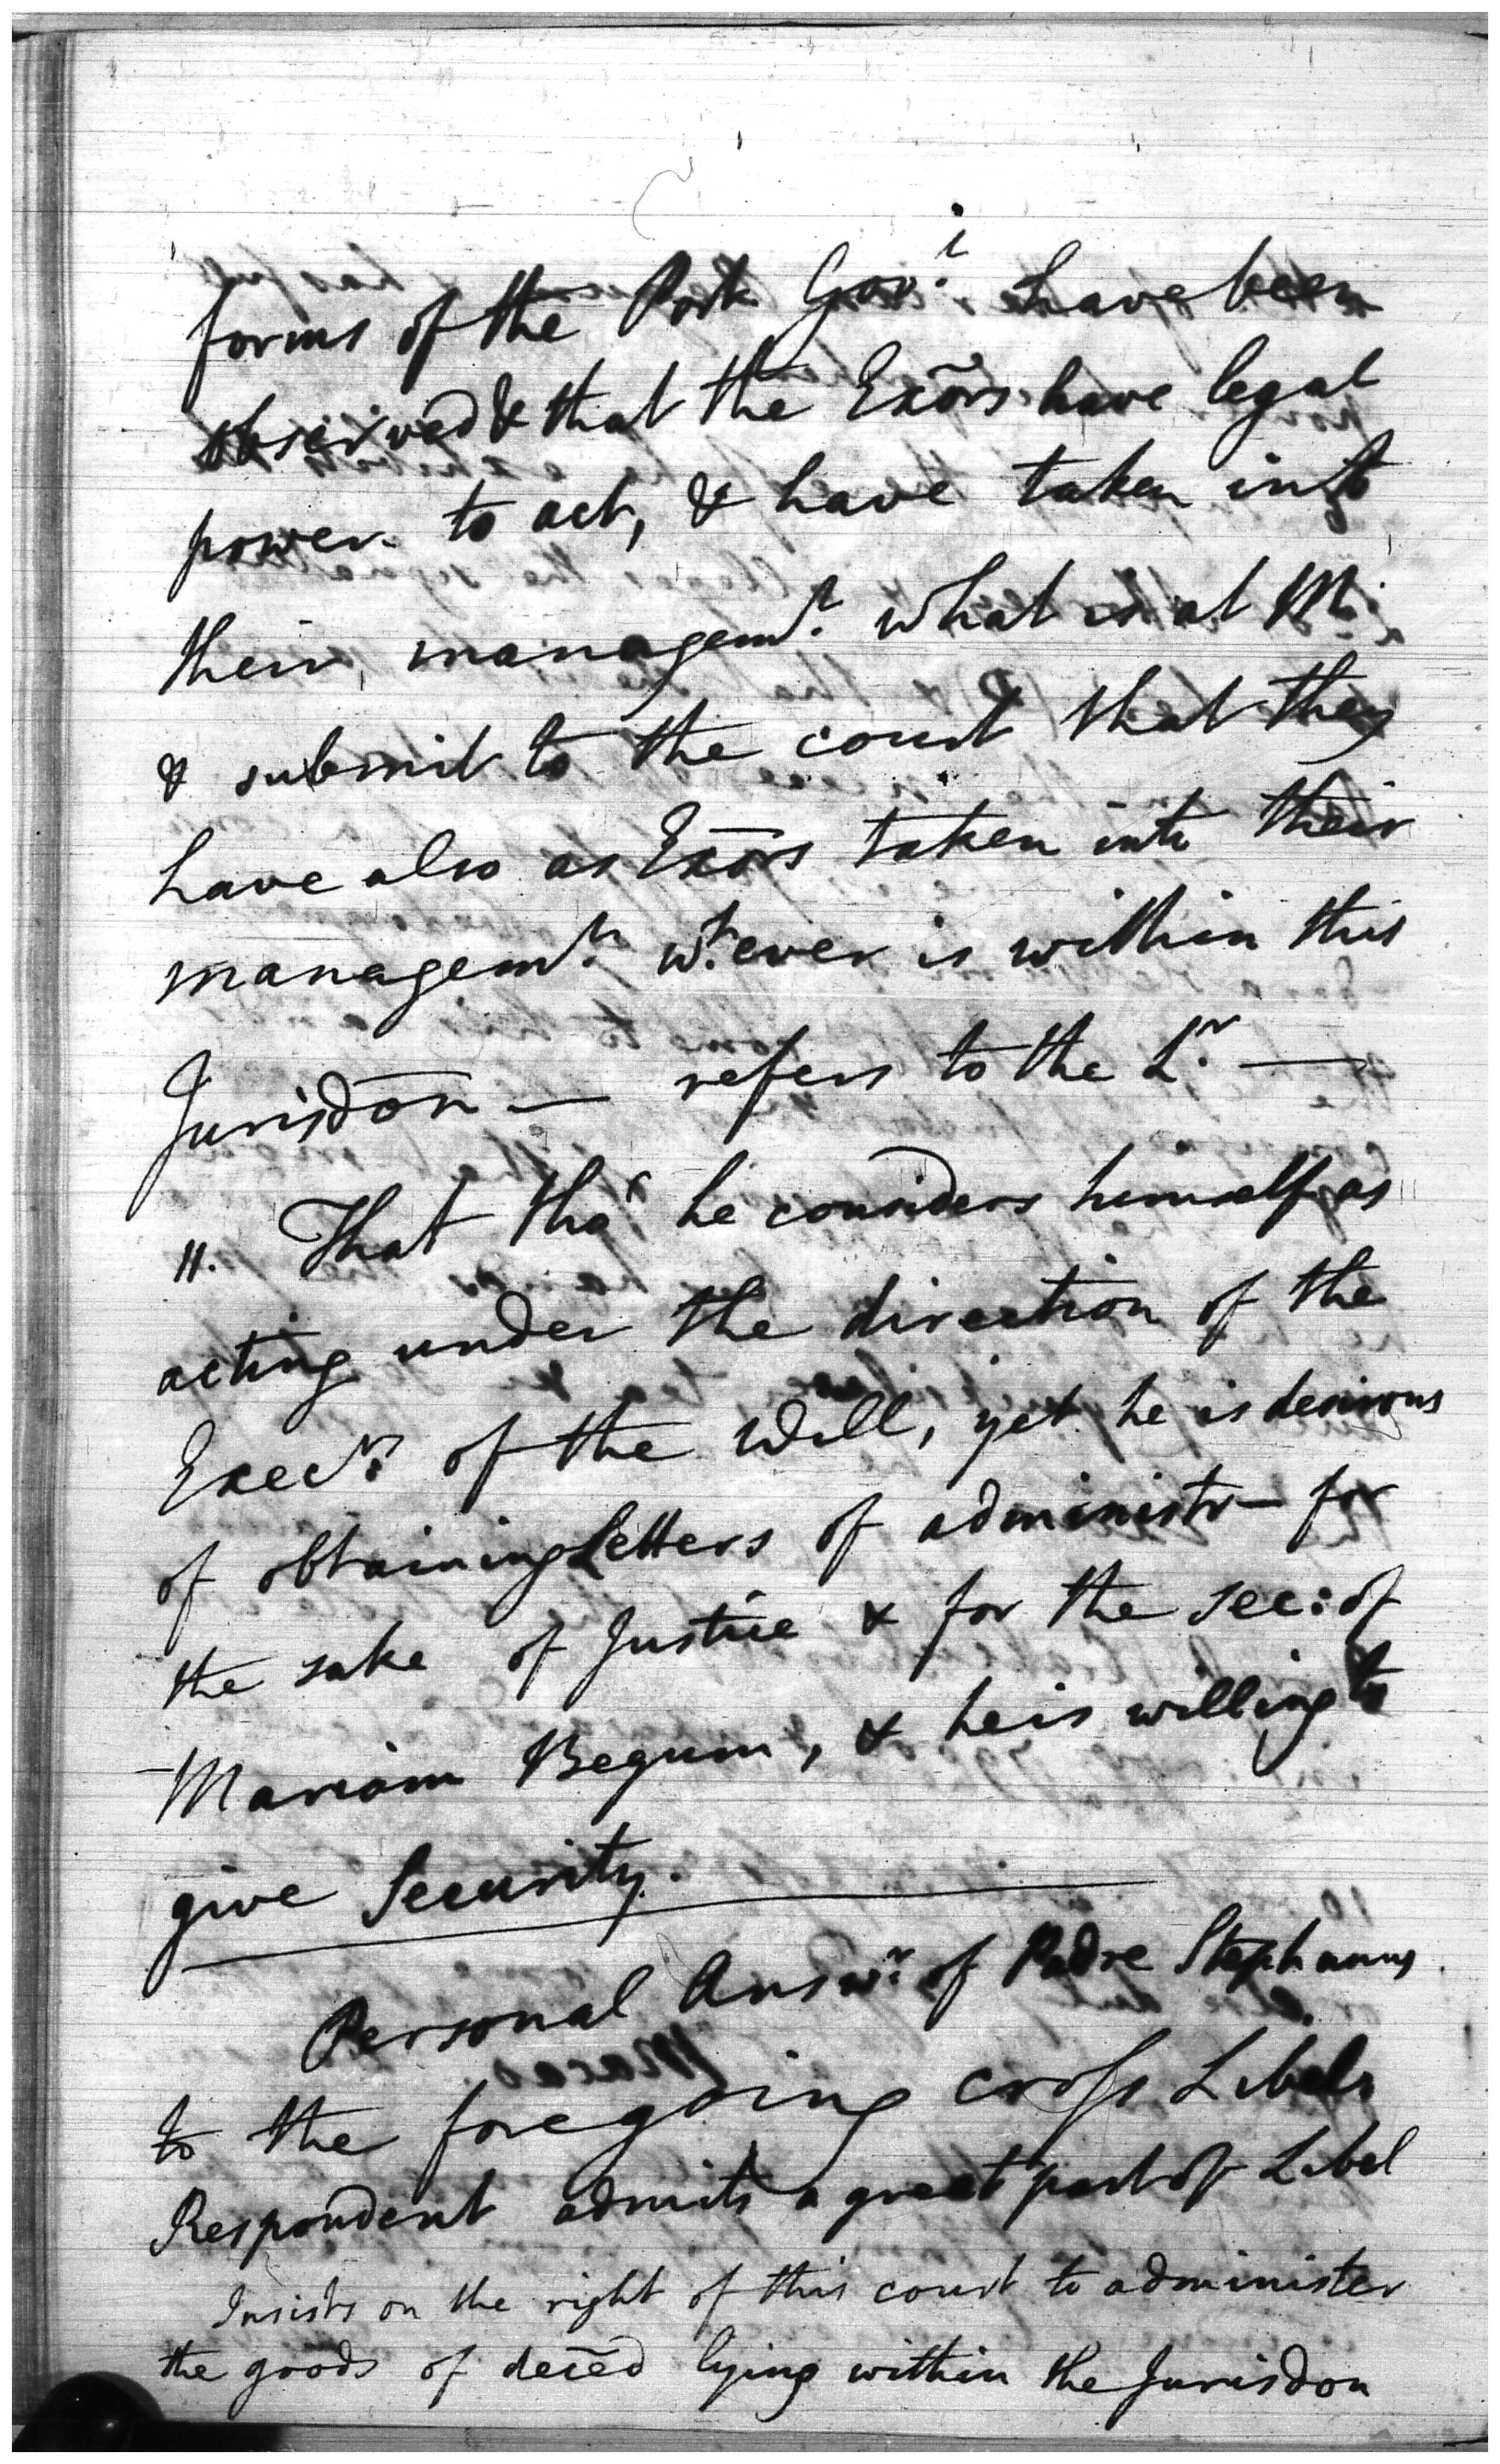 forms of the Port: Gov.t have been
observed & that the Exōrs have legal
power to act, & have taken into
their managem.t what is at M:
& submit to the court that they
have also as Exōrs taken into their
managem.t w.t ever is within this
Jurisdōn — refers to the L.r —
11. That tho' he considers himself as
acting under the direction of the
Exec.rs of the Will, yet he is desirous
of obtaining Letters of administr— for
the sake of Justice & for the sec: of
Mariam Begum, & he is willing to
give Security.
Personal Answ.r of Padre Stephanus
to the foregoing cross Libel.
Respondent admits a great part of Libel
Insists on the right of this court to administer
the goods of decēd lying within the Jurisdon